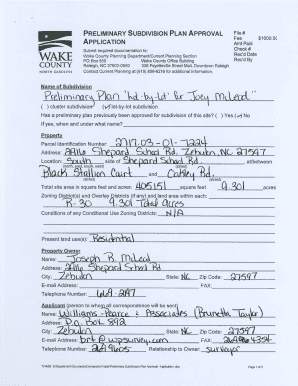 WAKE COUNTY
NORTH CAROLINA
PRELIMINARY SUBDIVISION PLAN APPROVAL APPLICATION
Submit required documentation to:
Wake County Planning Department/Current Planning Section
PO Box 550 Wake County Office Building
Raleigh, NC 27602-0550 336 Fayetteville Street Mall, Downtown Raleigh
Contact Current Planning at (919) 856-6216 for additional information.
File #
Fee $1000.00
Amt Paid
Check #
Rec'd Date
Rec'd By
Name of Subdivision
Preliminary Plan 'lot-by-lot' for Joey McLeod
( ) cluster subdivision (✓) lot-by-lot subdivision
Has a preliminary plan previously been approved for subdivision of this site? ( ) Yes (✓) No
If yes, when and under what name?
Property
Parcel Identification Number: 2717.03-01-7224
Address: 2916 Shepard School Rd. Zebulon, NC 27597
Location: South side of Shepard School Rd. at/between
(north, east, south, west) (street)
Black Stallion Court and Rd.
(street) (street)
Total site area in square feet and acres: 405151 square feet 9.301 acres
Zoning District(s) and Overlay Districts (if any) and land area within each:
R-30 9.301 total acres
Conditions of any Conditional Use Zoning Districts: N/A
Present land use(s): Residential
Property Owner
Name: Joseph R. McLeod
Address: 2916 Shepard School Rd
City: Zebulon State: NC Zip Code: 27597
E-mail Address: FAX:
Telephone Number: 269-2197
Applicant (person to whom all correspondence will be sent)
Name: Williams-Pearce & Associates (Brunetta Taylor)
Address: P.O. Box 892
City: Zebulon State: NC Zip Code: 27597
E-mail Address: brt@wpsurvey.com FAX:
Telephone Number: 2699605 Relationship to Owner: surveyor
Page 1 of